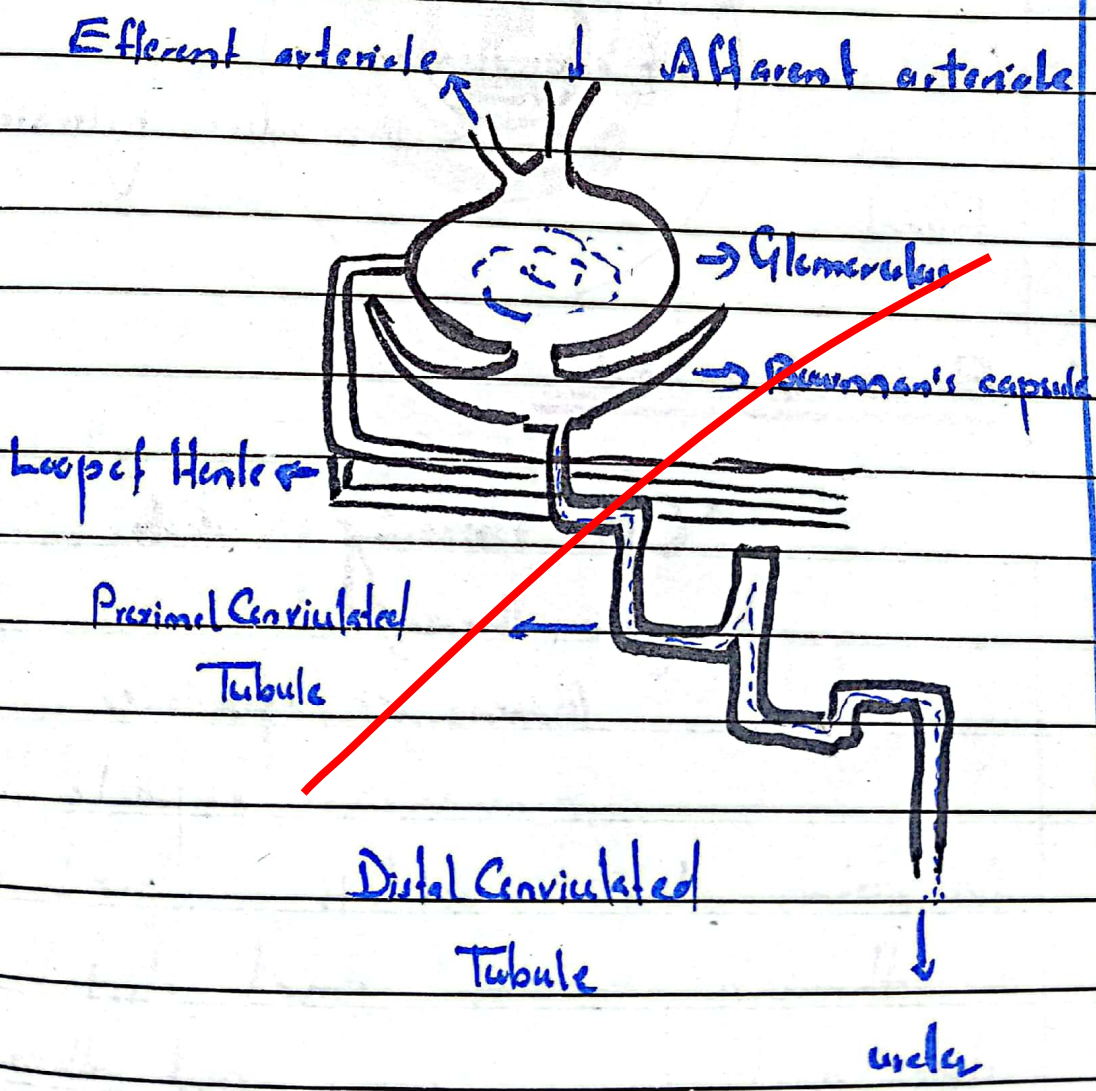 Efferent arteriole
Afferent arteriole
Glomerulus
Bowman's capsule
Loop of Henle
Proximal Convulated
Tubule
Distal Convulated
Tubule
ureter